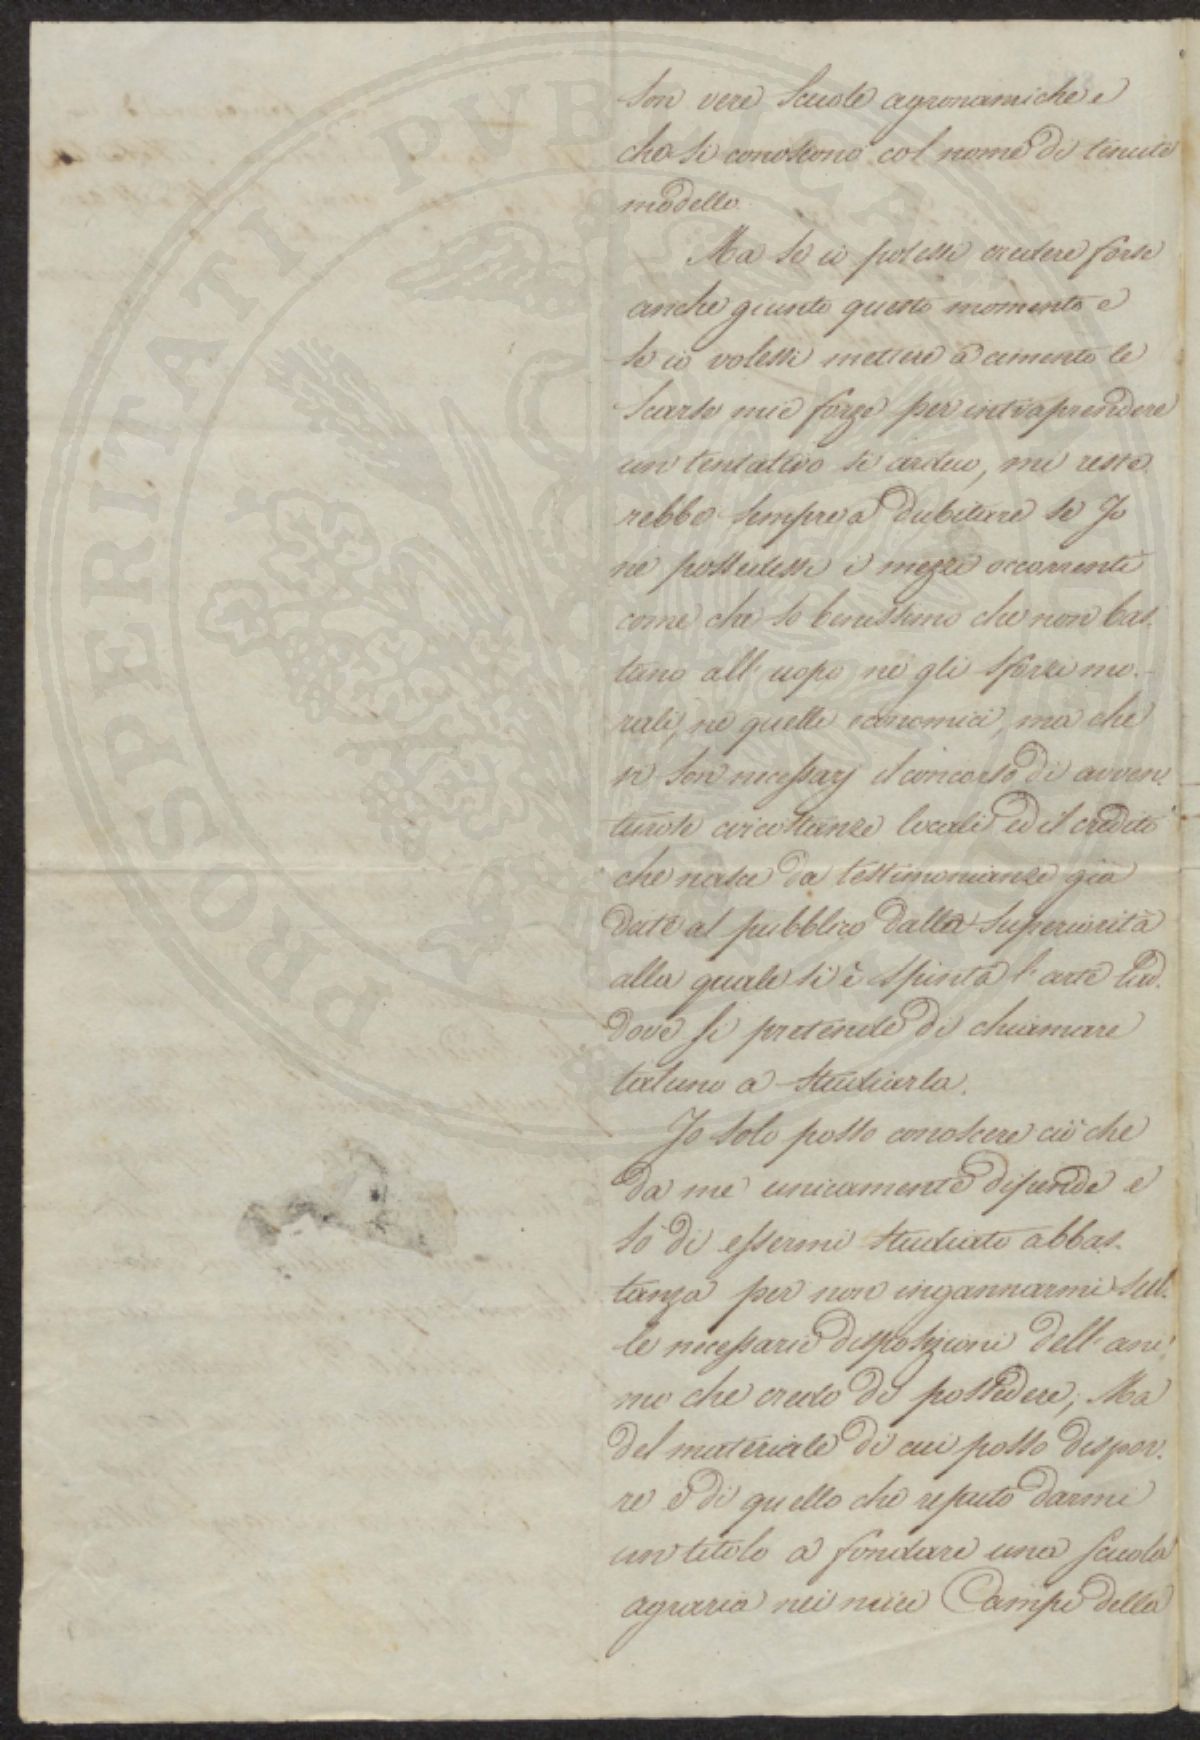 son vere Scuole agronamiche e
che si conoscono col nome di tenute
modello.
Ma se io potessi credere forse
anche giunto questo momento e
se io volessi mettere a cimento le
scarse mie forze per intraprendere
un tentativo sì arduo, mi reste
rebbe sempre a dubitare se Io
ne possedessi i mezzi occorrenti
come che so benissimo che non bas.
tano all'uopo nè gli sforzi mo.
rali, nè quelli economici, ma che
vi son necessarj il concorso di avven.
turose circostanze locali ed il credito
che nasce da testimonianze già
date al pubblico dalla superiorità
alla quale si è spinta l'arte là
dove si pretende di chiamare
taluno a studiarla.
Io solo posso conoscere ciò che
da me unicamente dipende e
sò di essermi studiato abbas.
tanza per non ingannarmi sul.
le necessarie disposizioni dell'ani
mo che credo di possedere; Ma
del materiale di cui posso dispor.
re e di quello che reputo darmi
un titolo a fondare una scuola
agraria nei miei Campi della
PROSPERITATI PVBLICAE